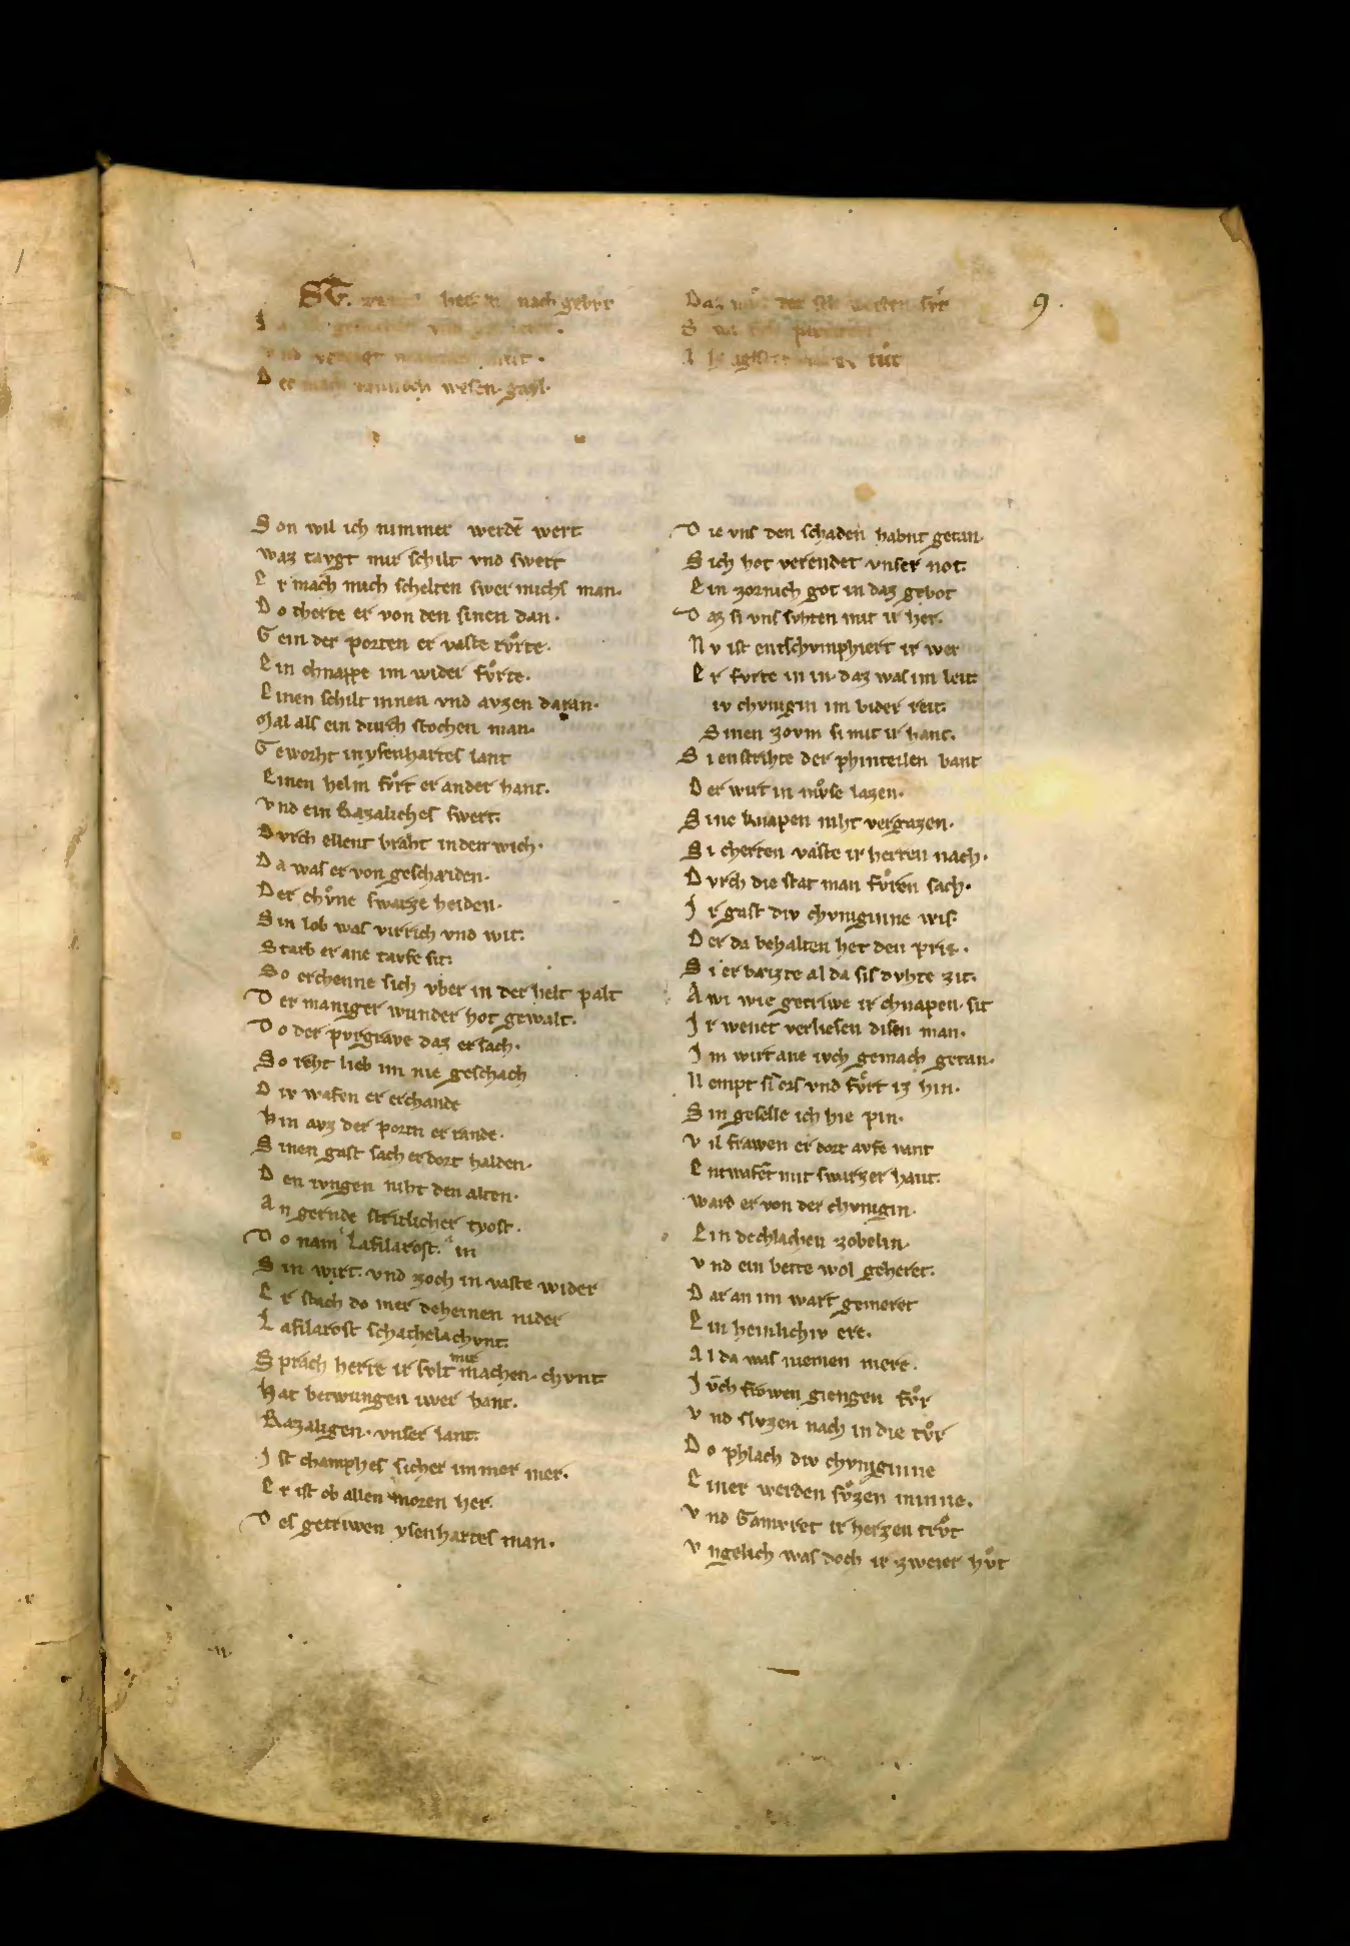 nach gebvr
Der wesen. gayl.
Son wil ich nimmer werdē wert
waz taygt mir schilt vnd swert
Er mach mich schelten swer michs man.
Do cherte er von den sinen dan.
Gein der porten er vaste rvͦrte.
Ein chnappe im wider fvͦrte.
Einen schilt innen vnd avzen daran.
Mal als ein durch stochen man.
Geworht in ysenhartes lant
Einen helm fvͦrt er ander hant.
vnd ein Razaliches swert.
Dvrch ellent braht in den wich.
Da was er von geschaiden.
Der chvͦne swarze heiden.
Sin lob was virrich vnd wit.
Starb er ane tavfe sit.
So erchenne sich vber in der helt palt
Der maniger wunder hot gewalt.
Do der pvrgrave daz er sach.
So reht lieb im nie geschach
Div wafen er erchande
hin avz der portn er rande.
Sinen gast sach er dort halden.
Den ivngen niht den alten.
An gernde stritlicher tyost.
Do nam Lafilarost. in
Sin wirt. vnd zoch in vaste wider
Er stach do mer deheinen nider
Lafilarost schachelachvnt.
Sprach herre ir svlt mir machen. chvnt
Hat betwungen iwer hant.
Razaligen. vnser lant.
Ist champhes sicher immer mer.
Er ist ob allen moren her.
Des getriwen ysenhartes man.
9.
Daz
S
tuͦt
Die vns den schaden habnt getan.
Sich hot verendet vnser not.
Ein zornich got in daz gebot
Daz si vns svhten mit ir her.
Nv ist entschvmphiert ir wer
Er fvrte in in. daz was im leit.
iv chvnigin im wider reit.
Sinen zovm si mit ir hant.
Si enstrihte der phinteilen bant
Der wirt in mvͦse lazen.
Sine knapen niht vergazen.
Si cherten vaste ir herren nach.
Dvrch die stat man fvͦren sach.
Ir gast div chvniginne wis.
Der da behalten het den pris.
Si er baizte al da sis dvhte zit.
Awi wie getriwe ir chnapen. sit
Ir wenet verliesen disen man.
Im wirt ane ivch gemach getan.
Nempt sī ors vnd fvͦrt iz hin.
Sin geselle ich hie pin.
Vil frawen er dort avfe vant
Entwafēt mit swarzer hant.
ward er von der chvnigin.
Ein dechlachen zobelin.
vnd ein bette wol geheret.
Dar an im wart gemeret
Ein heinlichiv ere.
Al da was niemen mere.
Ivͦch frowen giengen fvͦr
vnd slvzen nach in die tvͦr
Do phlach div chvniginne
Einer werden svͦzen minne.
vnd Gamvret ir herzen trvͦt
vngelich was doch ir zweier hvͦt